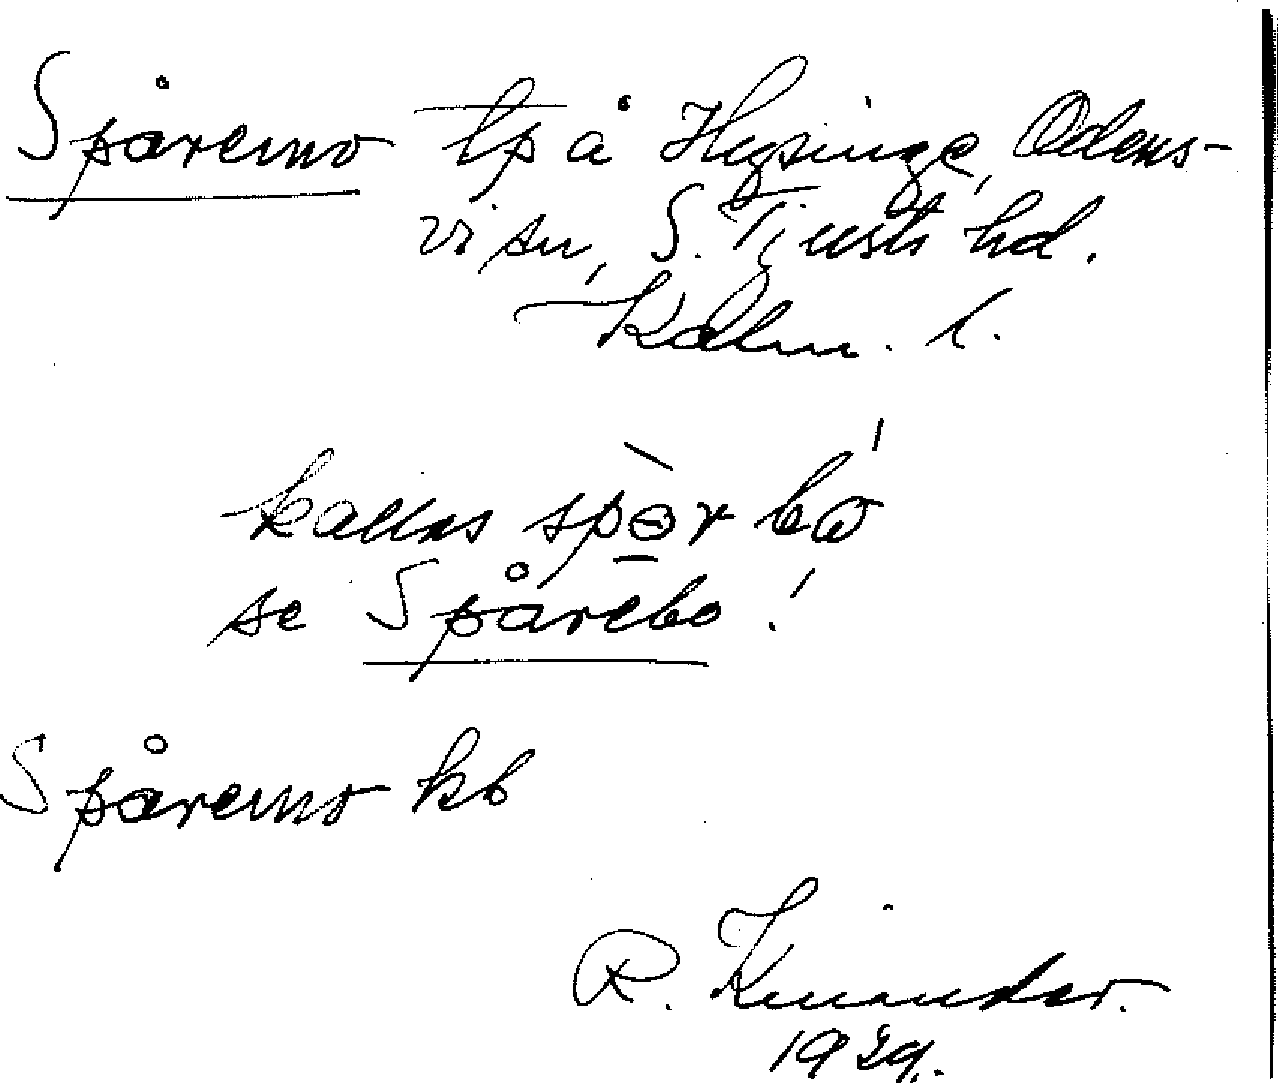 Spåremo tp å Hycinge, Odens-
vi sn, S. Tjusts hd.
Kalm. l.
kallas spòr bó
se Spårebo!
Spåremo kb
R. Kinander.
1929.